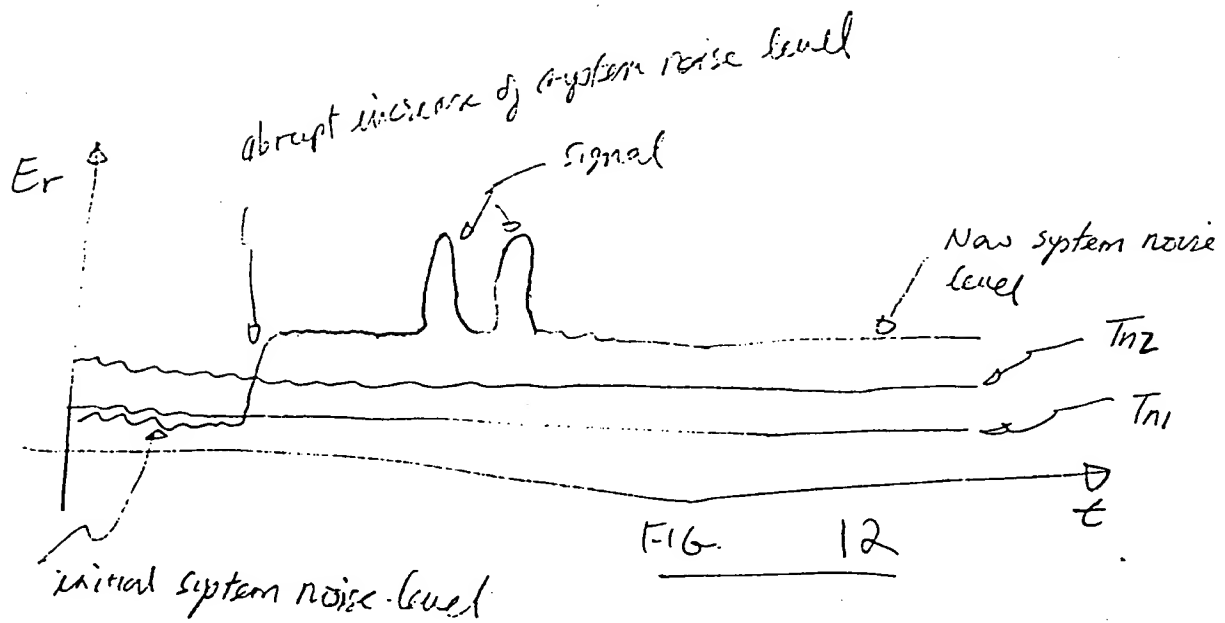 abrupt increase of system noise level
Er
signal
Now system noise
level
Tn2
Tn1
t
FIG. 12
initial system noise level